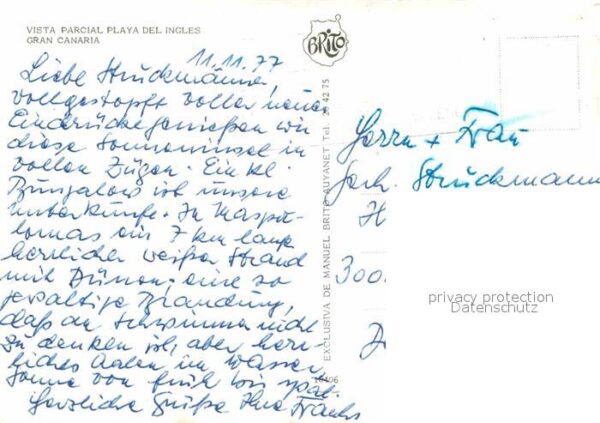 VISTA PARCIAL PLAYA DEL INGLES
GRAN CANARIA
BRITO
11.11.77
Liebe Struckmänner,
vollgestopft voller neuer
Eindrücke genießen wir
diese Sonneninsel in
vollen Zügen. Ein kl.
Bungalow ist unsere
Unterkunft. In Maspa-
lomas ein 7 km lange
herrlicher weißer Strand
mit Dünen, eine so
gewaltige Brandung,
daß an Schwimmen nicht
zu denken ist, aber herr-
liches Aalen im Wasser,
Sonne von früh bis spät.
Herzliche Grüße Ihre
EXCLUSIVA DE MANUEL BRITO AUYANET Tel. 42 75
Herrn + Frau
Struckmann
H
300
privacy protection
Datenschutz